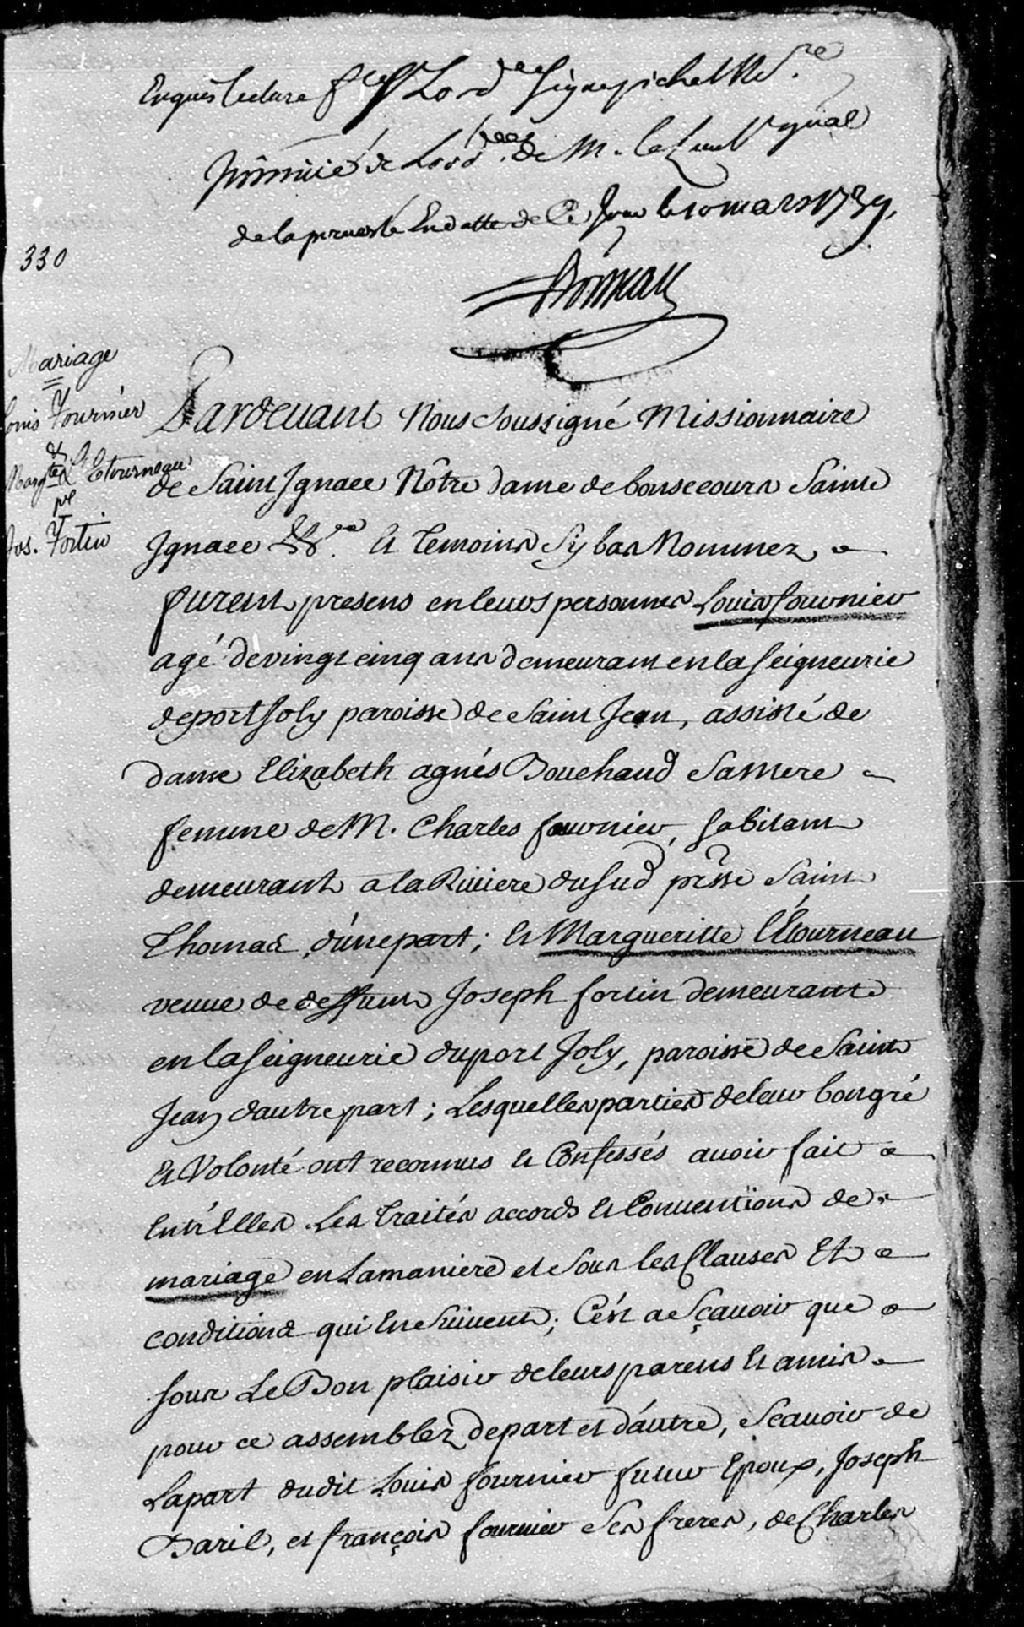 de Lord
de Lord de M. le
de la prevosté En datte de Ce Jour le 10 mars 1739.
330
Mariage
Louis Fournier
&
Margte LEtourneau
ve
Jos. Fortin
Pardevant Nous Soussigné Missionnaire
de Saint Ignace Nôtre dame de bonsecours Sainte
Ignace &ca Et temoins Sy bas Nommez
furent presens en leurs personnes Louis fournier
agé de vingt cinq ans demeurant en la Seigneurie
de port Joly paroisse de Saint Jean, assisté de
dame Elizabeth agnés Bouchaud Sa Mere
femme de M. Charles fournier, habitant
demeurant a la Riviere du Sud psse Saint
Thomas d'une part; Et Margueritte LEtourneau
veuve de deffunt Joseph fortin demeurant
en la Seigneurie du port Joly, paroisse de Saint
Jean dautre part; Lesquelles parties de leur bon gré
Et Volonté ont reconnus Et Confessés avoir fait
Entr'Elles Les Traités accords Et Conventions de
mariage en La maniere et Sous les Clauses Et
conditions qui En Suivent; C'est a Sçavoir que
sous Le Bon plaisir de leurs parens Et amis
pour ce assemblez de part et d'autre, Scavoir de
La part dudit Louis fournier futur Epoux, Joseph
Baril, et françois fournier Ses freres, de Charles